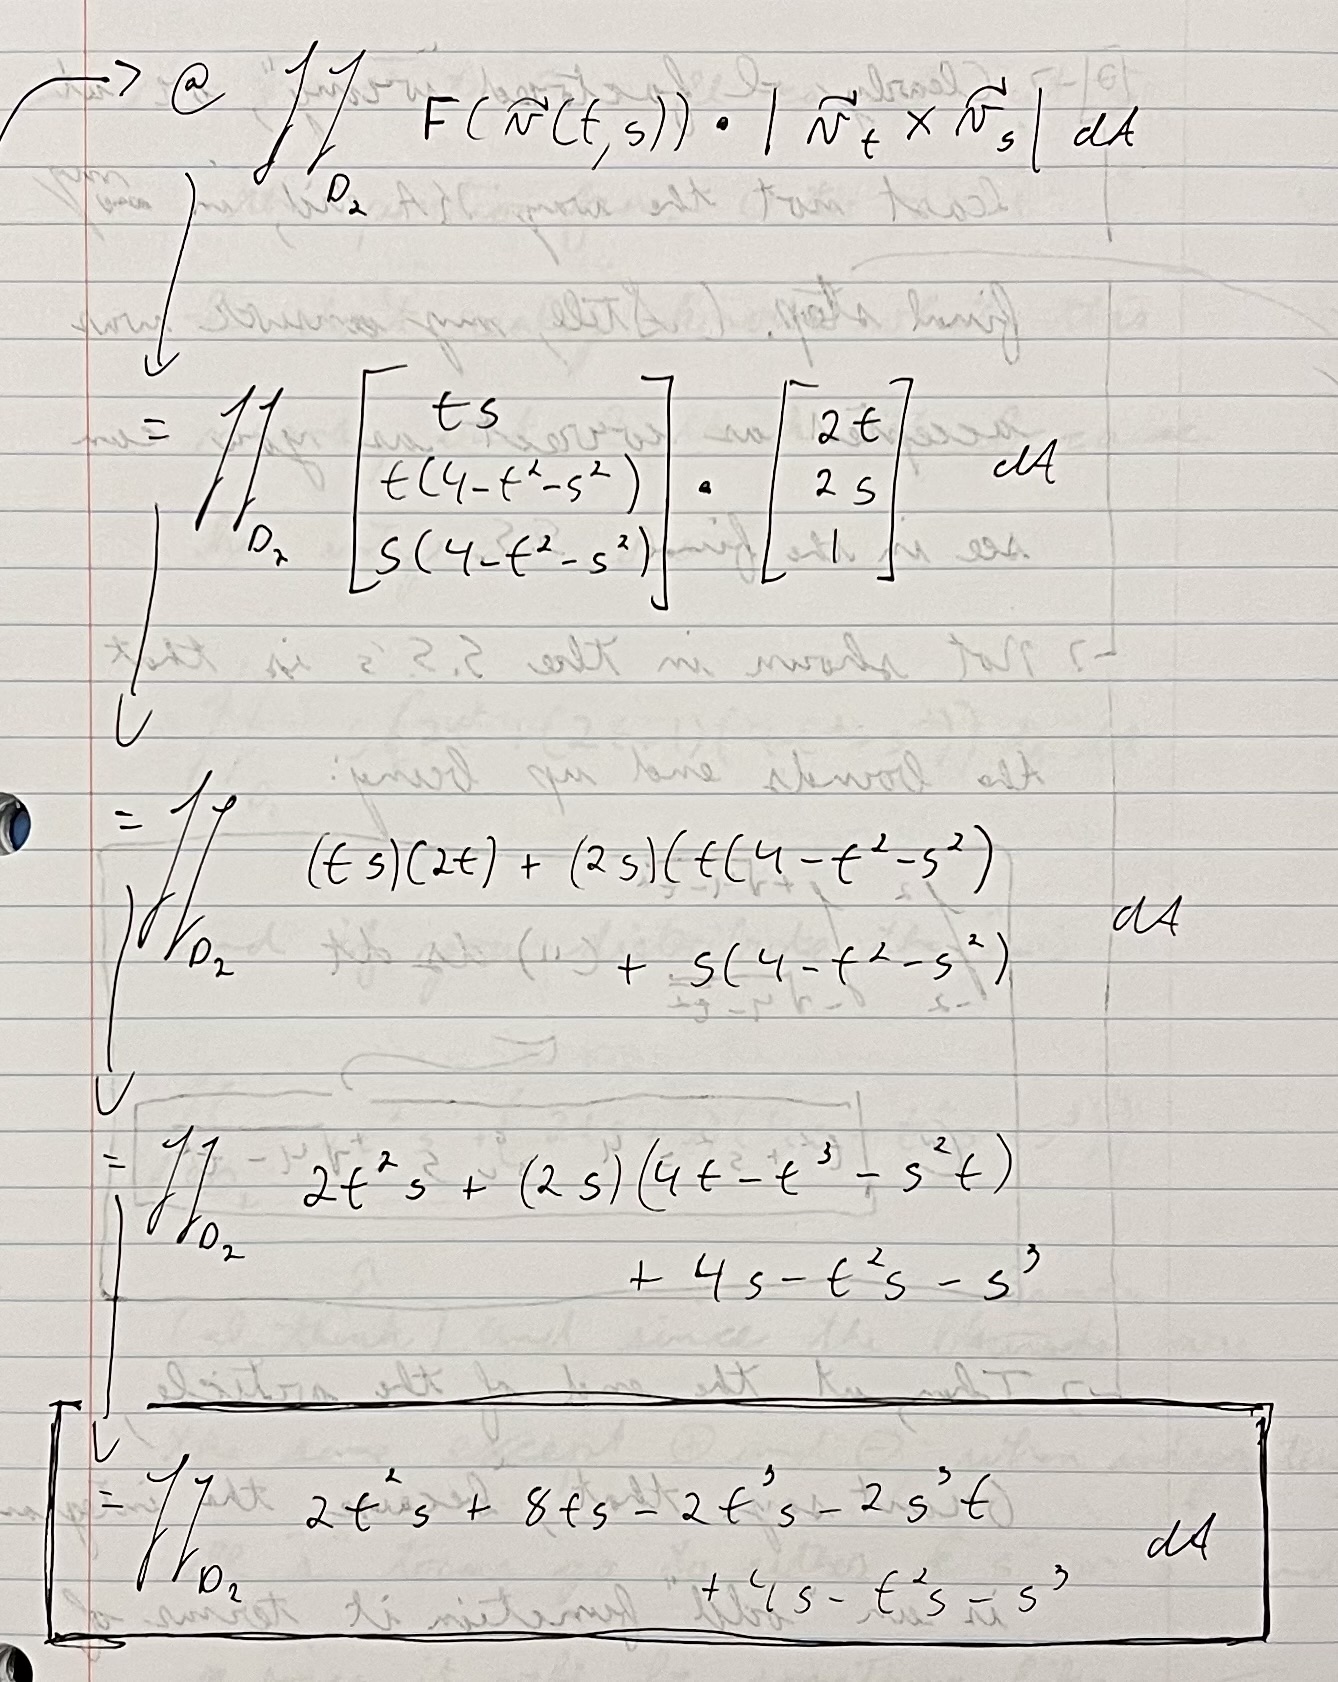 → @ ∬_{D₂} F(r⃗(t,s)) • | r⃗_t × r⃗_s | dA
= ∬_{D₂} [ts, t(4-t²-s²), s(4-t²-s²)] • [2t, 2s, 1] dA
= ∬_{D₂} (ts)(2t) + (2s)(t(4-t²-s²)
+ s(4-t²-s²) dA
= ∬_{D₂} 2t²s + (2s)(4t-t³-s²t)
+ 4s-t²s-s³
= ∬_{D₂} 2t²s + 8ts-2t³s-2s³t
+ 4s-t²s-s³ dA